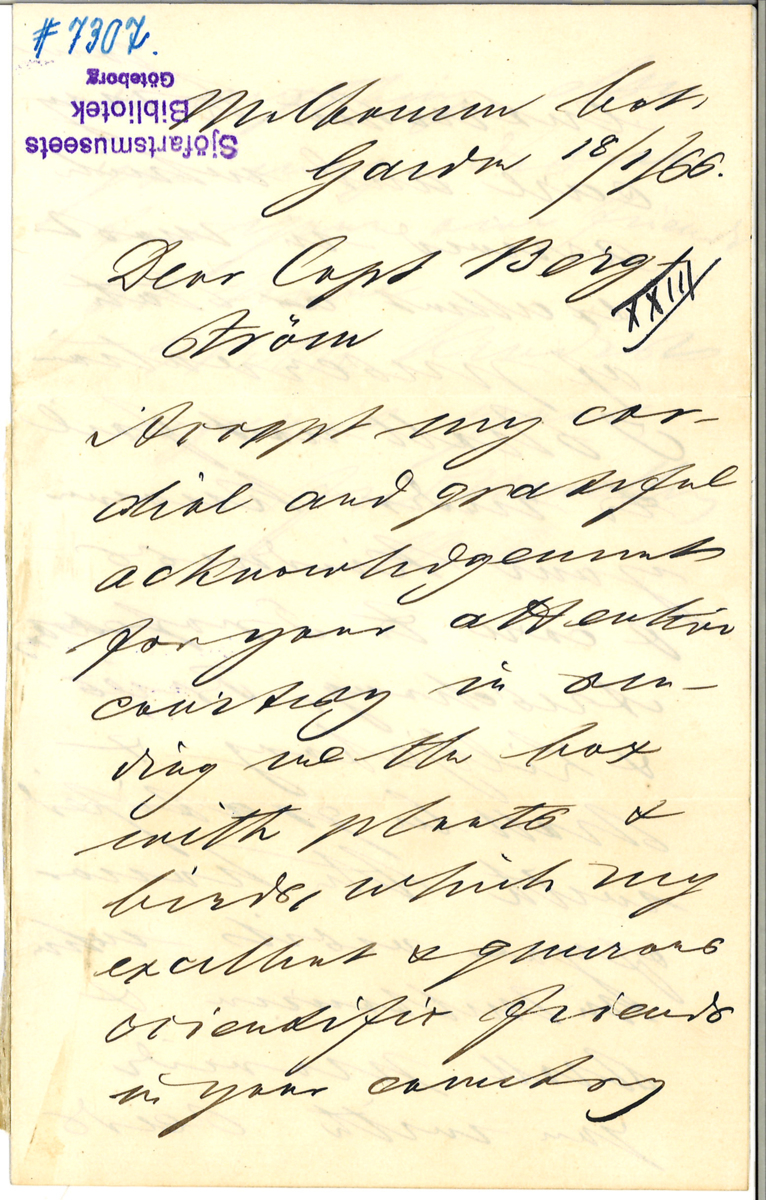 # 7307.
Sjöfartsmuseets
Bibliotek
Göteborg
Melbourne bot.
Garden 18/1/66.
Dear Capt Berg-
ström
XXIII
Accept my cor-
dial and grateful
acknowledgements
for your attentive
courtesy in sen-
ding me the box
with plants &
birds, which my
excellent & generous
scientific friends
in your country